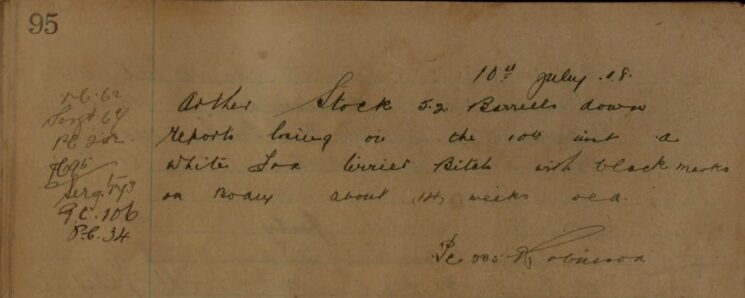 95
10th July .18.
Arther Stock 52 Barrells down
reports losing on the 10th inst a
white Fox terrier Bitch with black marks
on Body about 14 weeks old.
Pc 335 Robinson
P.C. 62
Sergt 69
PC 202
Serg. 573
P.C. 106
P.C. 34